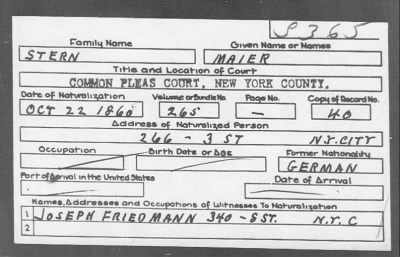 S365
Family Name Given Name or Names
STERN MAIER
Title and Location of Court
COMMON PLEAS COURT, NEW YORK COUNTY.
Date of Naturalization Volume or Bundle No. Page No. Copy of Record No.
OCT 22 1860 265 — 40
Address of Naturalized Person
266 - 3 ST N.Y. CITY
Occupation Birth Date or Age Former Nationality
GERMAN
Port of Arrival in the United States Date of Arrival
Names, Addresses and Occupations of Witnesses To Naturalization
1 JOSEPH FRIEDMANN 340 - 8 ST. N.Y.C
2